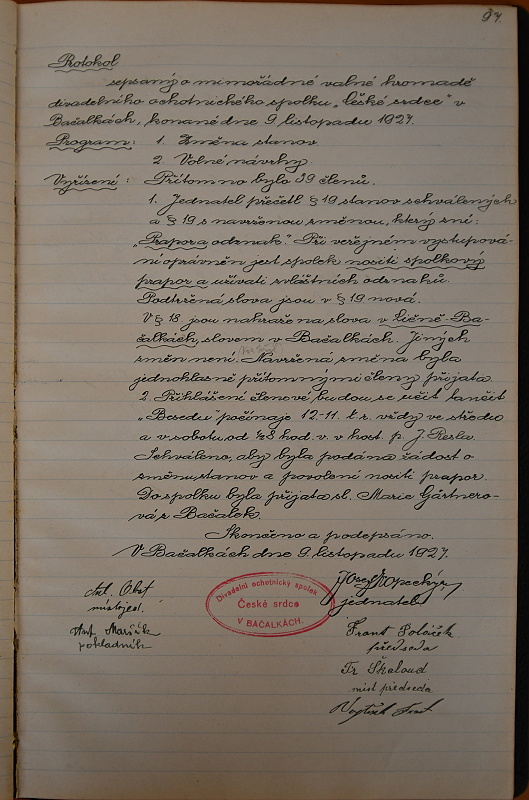 97.
Protokol
sepsaný o mimořádné valné hromadě
divadelního ochotnického spolku „České srdce" v
Bačalkách, konané dne 9. listopadu 1927.
Program: 1. Změna stanov
2. Volné návrhy
Vyřízení: Přítomno bylo 39 členů.
1. Jednatel přečetl § 19 stanov schválených
a § 19 s navrženou změnou, který zní:
„Prapor a odznak." Při veřejném vystupová-
ní oprávněn jest spolek nositi spolkový
prapor a užívati zvláštních odznaků.
Podtržená slova jsou v § 19 nová.
V § 18 jsou nahražena slova v Ličně-Ba-
čalkách, slovem v Bačalkách. Jiných
změn není. Navržená změna byla
jednohlasně přítomnými členy přijata.
2. Přihlášení členové budou se učit tančit
„Besedu" počínaje 12.-11. t.r. vždy ve středu
a v sobotu od ½8 hod. v. v host. p. J. Resla.
Schváleno, aby byla podána žádost o
změnu stanov a povolení nositi prapor.
Do spolku byla přijata sl. Marie Gärtnero-
vá z Bačalek.
Skončeno a podepsáno.
V Bačalkách dne 9. listopadu 1927.
Ant. Obst
místojed.
Ant. Mařík
pokladník
Divadelní ochotnický spolek
České srdce
V BAČALKÁCH.
Josef Kopecký
jednatel
Frant
předseda
Fr. Škaloud
míst předseda
Vojtěch